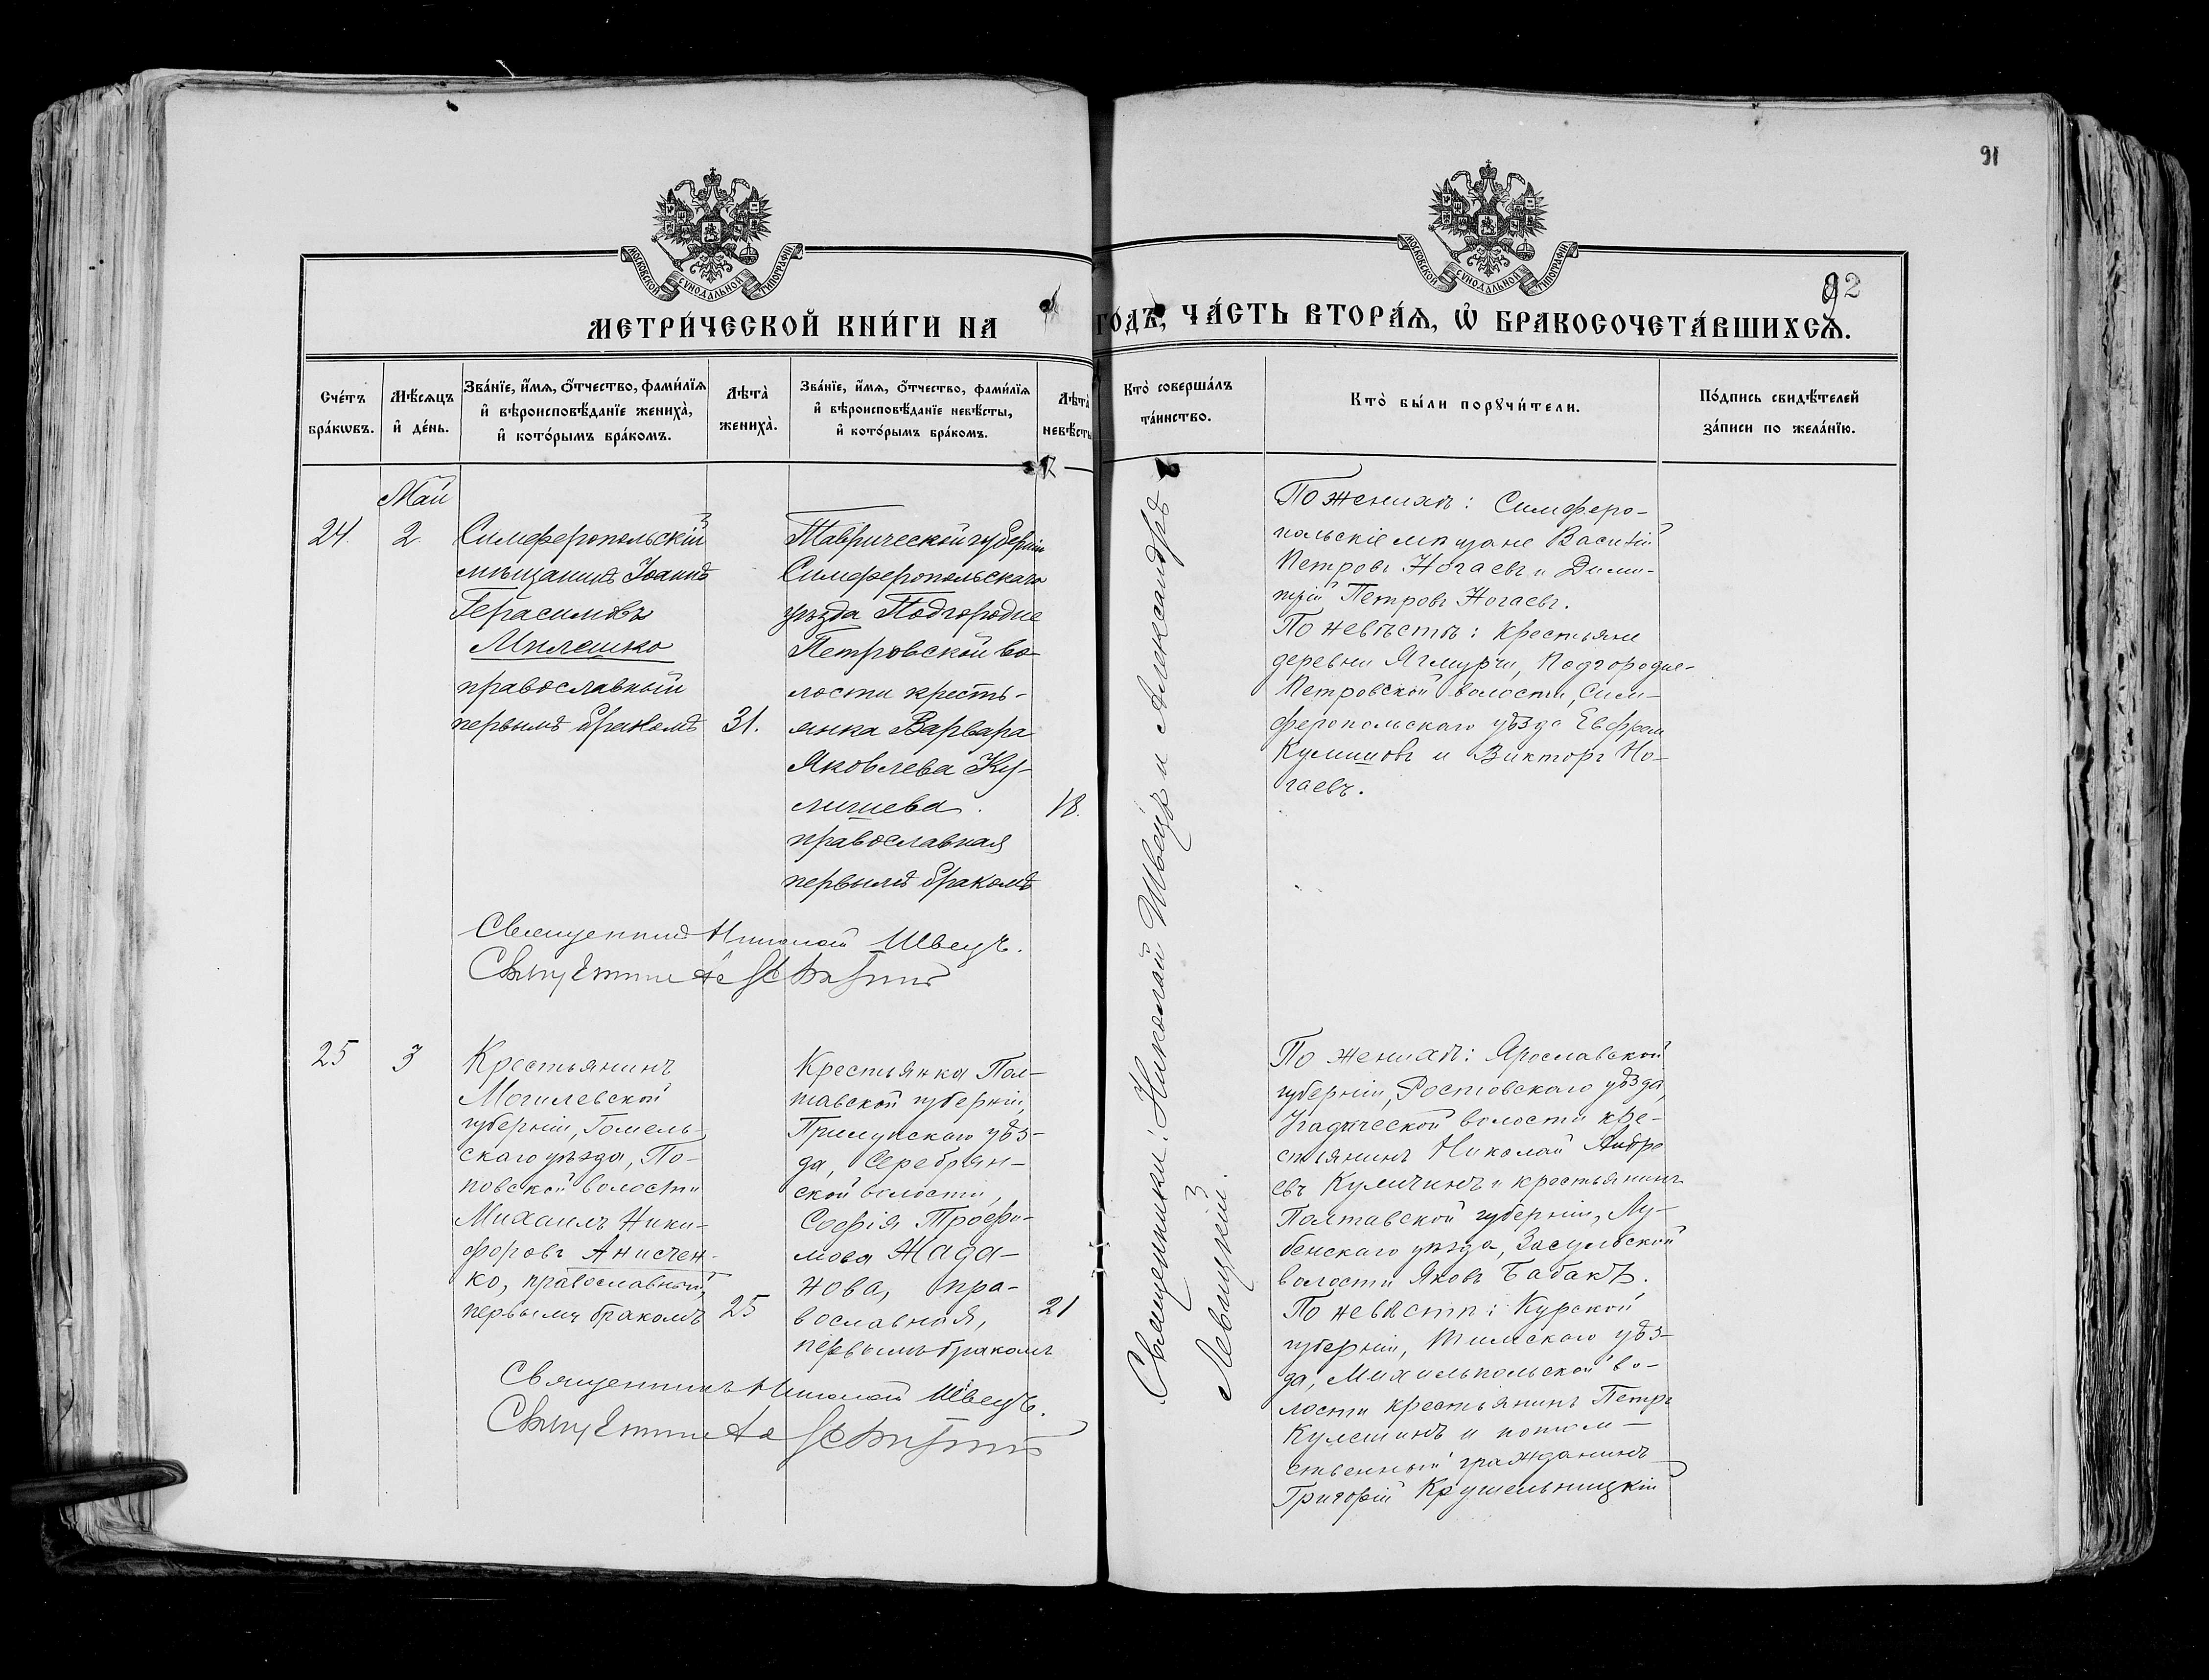 91
МОСКОВСКОЙ СѴНОДАЛЬНОЙ ТИПОГРАФІИ
МОСКОВСКОЙ СѴНОДАЛЬНОЙ ТИПОГРАФІИ
92
МЕТРИ́ЧЕСКОЙ КНИ́ГИ НА
ГО́ДЪ, ЧА́СТЬ ВТОРА́Ѧ, Ѡ҆ БРАКОСОЧЕТА́ВШИХСѦ.
Сче́тъ
бра́кѡвъ.
Мѣ́сѧцъ
и҆ де́нь.
Зва́нїе, и҆́мѧ, ѻ҆́тчество, фами́лїѧ
и҆ вѣроисповѣ́данїе жениха̀,
и҆ кото́рымъ бра́комъ.
Лѣта̀
жениха̀.
Зва́нїе, и҆́мѧ, ѻ҆́тчество, фами́лїѧ
и҆ вѣроисповѣ́данїе невѣ́сты,
и҆ кото́рымъ бра́комъ.
Лѣта̀
невѣ́сты
Кто̀ соверша́лъ
та́инство.
Кто̀ бы́ли порꙋчи́тели.
По́дпись свидѣ́телей
за́писи по жела́нїю.
Май
24.
2.
Симферопольскій
мѣщанинъ Іоаннъ
Герасимовъ
Милешко
православный
первымъ бракомъ
31.
Таврической губерніи
Симферопольскаго
уѣзда Подгородне
Петровской во-
лости кресть-
янка Варвара
Яковлева Ку-
лишева.
православная
первымъ бракомъ
18.
Священникъ Николай Швецъ.
Священники: Николай Швецъ и Александръ
Левицкій.
По женихѣ: Симферо-
польскіе мѣщане Василій
Петровъ Ногаевъ и Дими-
трій Петровъ Ногаевъ.
По невѣстѣ: крестьяне
деревни Ягмурчи, Подгородне-
Петровской волости, Сим-
феропольскаго уѣзда Ефрем
Кулишовъ и Викторъ Но-
гаевъ.
25
3
Крестьянинъ
Могилевской
губерніи, Гомель-
скаго уѣзда, По-
повской волости
Михаилъ Ники-
форовъ Анисчен-
ко, православный,
первымъ бракомъ
25
Крестьянка Пол-
тавской губерніи,
Прилукскаго уѣз-
да, Серебрян-
ской волости,
Софія Трофи-
мова Жада-
нова, пра-
вославная,
первымъ бракомъ
21
Священникъ Николай Швецъ.
По женихѣ: Ярославской
губерніи, Ростовскаго уѣзда,
Угодической волости кре-
стьянинъ Николай Андре
евъ Куличкинъ и крестьянинъ
Полтавской губерніи, Лу-
бенскаго уѣзда, Засульской
волости Яковъ Бабакъ.
По невѣстѣ: Курской
губерніи, Тимскаго уѣз-
да, Михельпольской во-
лости крестьянинъ Петръ
Кулешинъ и потом-
ственный гражданинъ
Григорій Крушельницкій